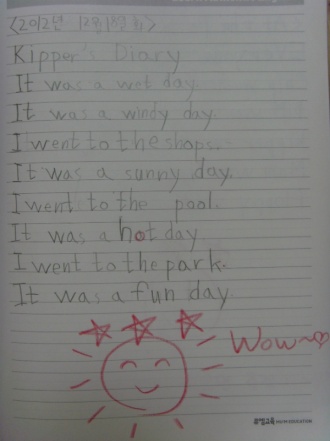 <2012년 12월 18일 화>
Kipper's Diary
It was a wet day.
It was a windy day.
I went to the shops.
It was a sunny day.
I went to the pool.
It was a hot day
I went to the park.
It was a fun day.
Wow~♡